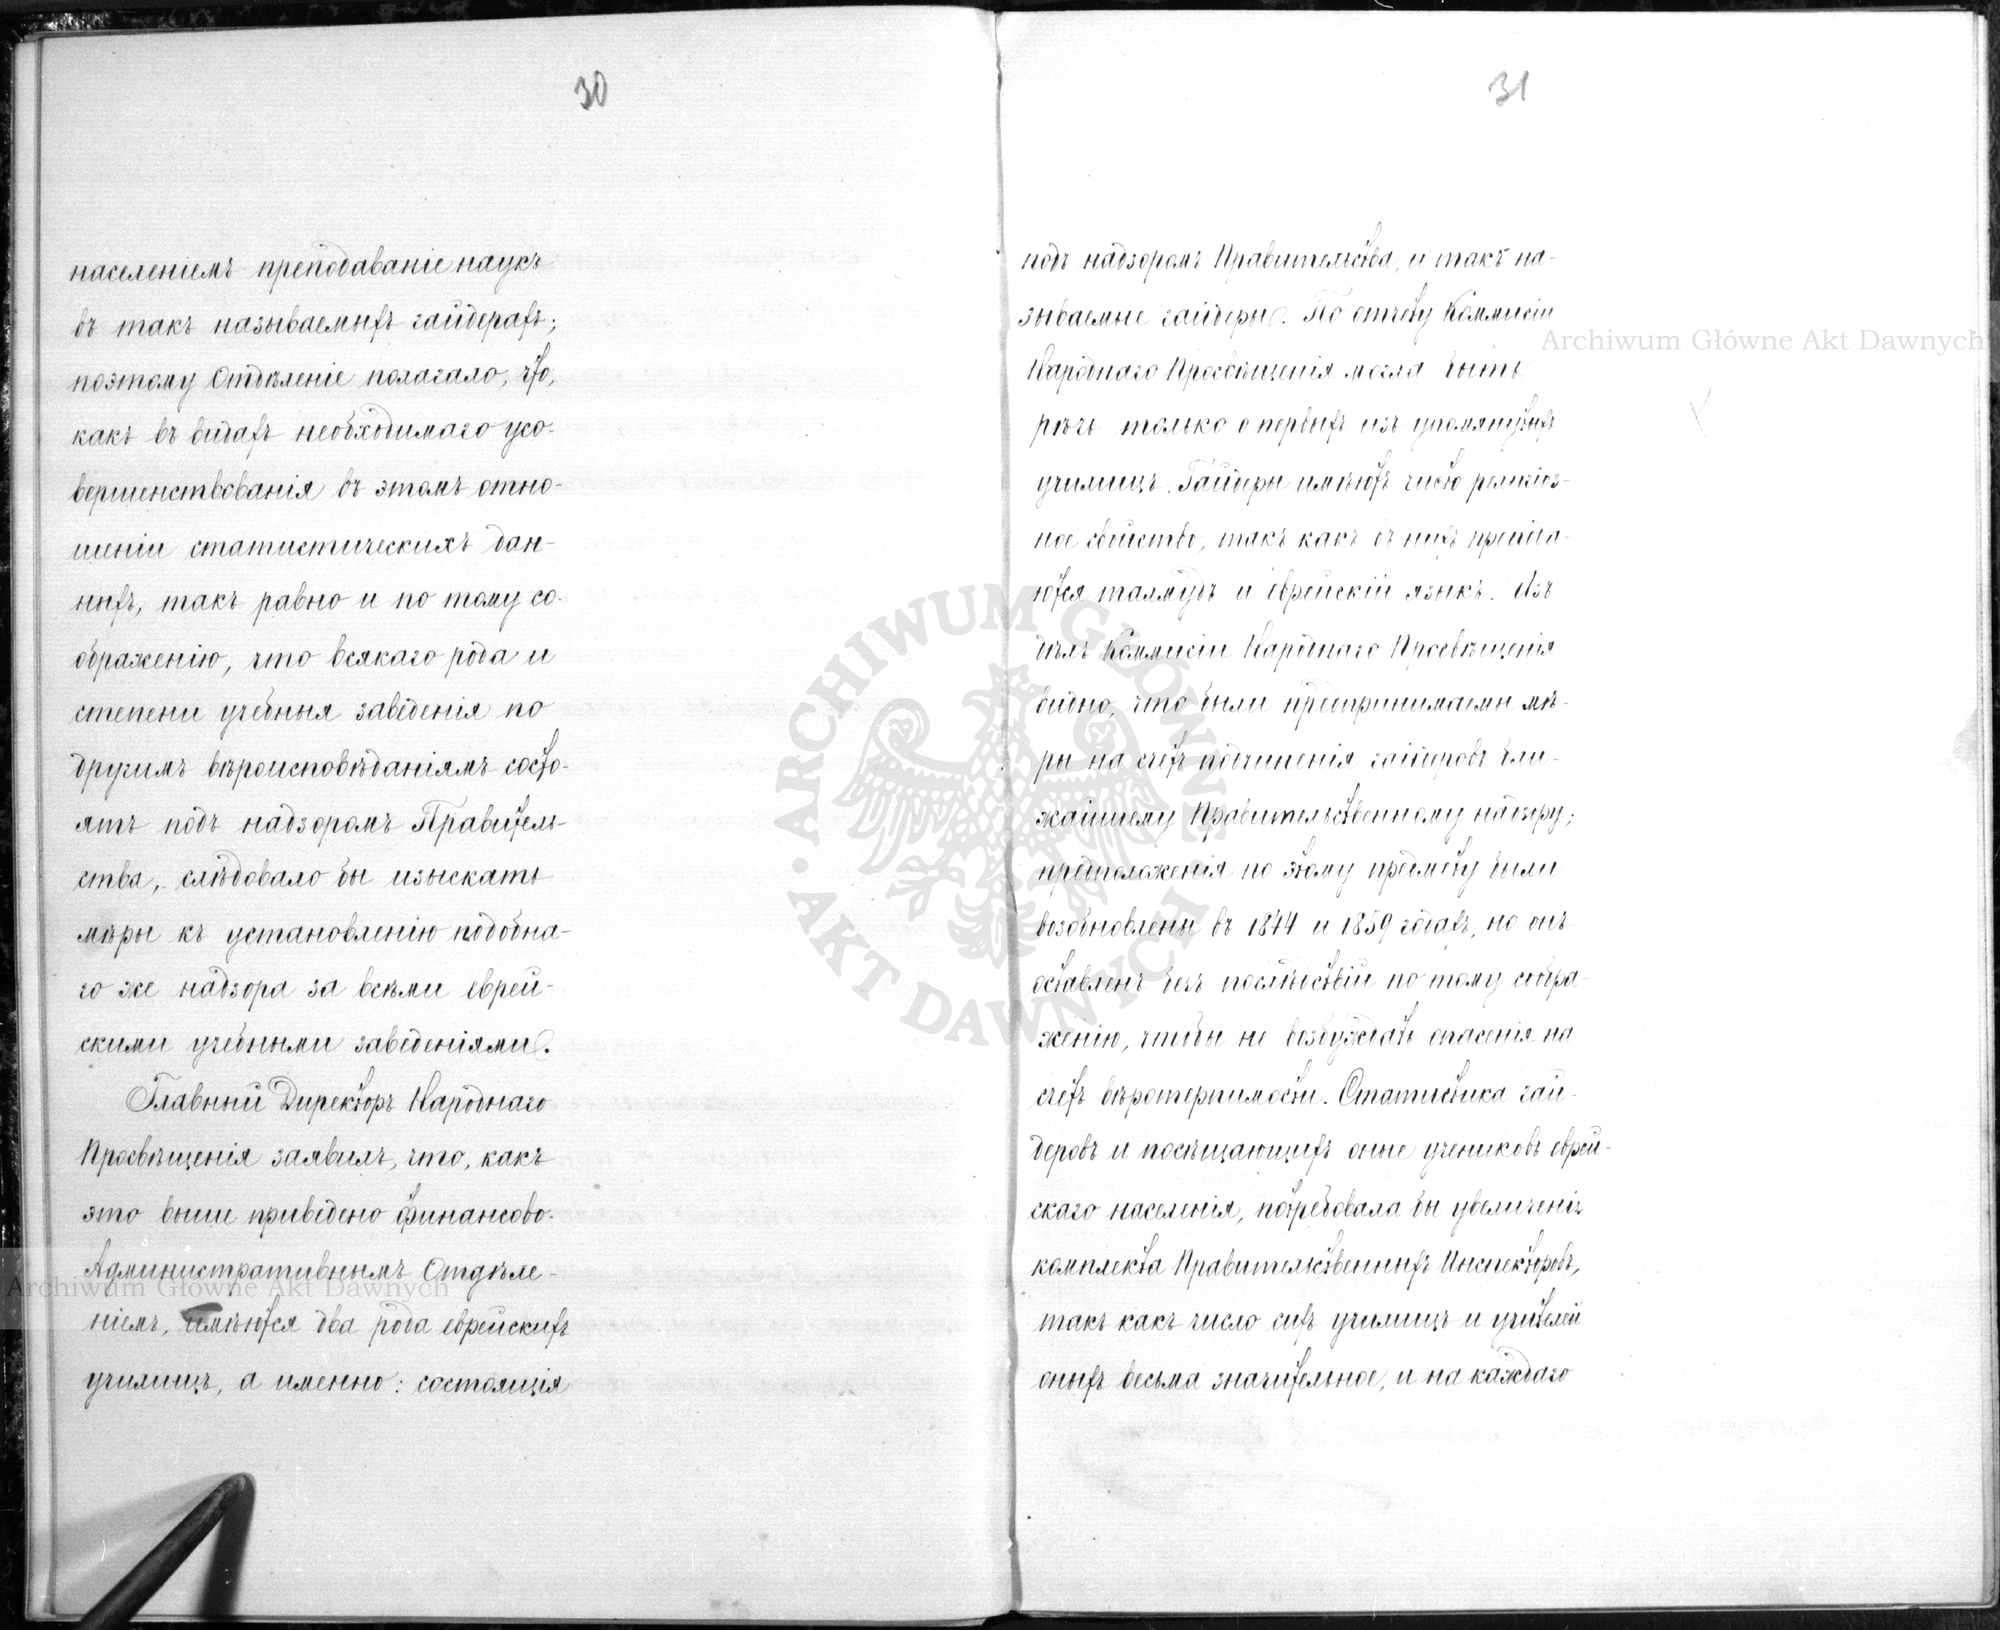 30
населеніемъ преподаваніе наукъ
въ такъ называемыхъ гайдерахъ;
поэтому Отдѣленіе полагало, что,
какъ въ видахъ необходимаго усо-
вершенствованія въ этомъ отно-
шеніи статистическихъ дан-
ныхъ, такъ равно и по тому со-
ображенію, что всякаго рода и
степени учебныя заведенія по
другимъ вѣроисповѣданіямъ состо-
ятъ подъ надзоромъ Правитель-
ства, слѣдовало бы изыскать
мѣры къ установленію подобна-
го же надзора за всѣми еврей-
скими учебными заведеніями.
Главный Директоръ Народнаго
Просвѣщенія заявилъ, что, какъ
это выше приведено Финансово-
Административнымъ Отдѣле-
ніемъ, имѣются два рода еврейскихъ
училищъ, а именно: состоящія
31
подъ надзоромъ Правительства, и такъ на-
зываемые гайдеры. По отчету Коммисіи
Народнаго Просвѣщенія могла быть
рѣчь только о первыхъ изъ упомянутыхъ
училищъ. Гайдеры имѣютъ чисто религіоз-
ное свойство, такъ какъ въ нихъ препода-
ются талмудъ и еврейскій языкъ. Изъ
дѣлъ Коммисіи Народнаго Просвѣщенія
видно, что были предпринимаемы мѣ-
ры на счетъ подчиненія гайдеровъ бли-
жайшему Правительственному надзору;
предположенія по этому предмету были
возобновлены въ 1844 и 1859 годахъ, но онѣ
оставлены безъ послѣдствій по тому сообра-
женію, чтобы не возбуждать опасенія на
счетъ вѣротерпимости. Статистика гай-
деровъ и посѣщающихъ оные учениковъ еврей-
скаго населенія, потребовала бы увеличенія
комплекта Правительственныхъ Инспекторовъ,
такъ какъ число сихъ училищъ и учителей
оныхъ весьма значительное, и на каждаго
Archiwum Główne Akt Dawnych
Archiwum Główne Akt Dawnych
ARCHIWUM GŁÓWNE · AKT DAWNYCH ·